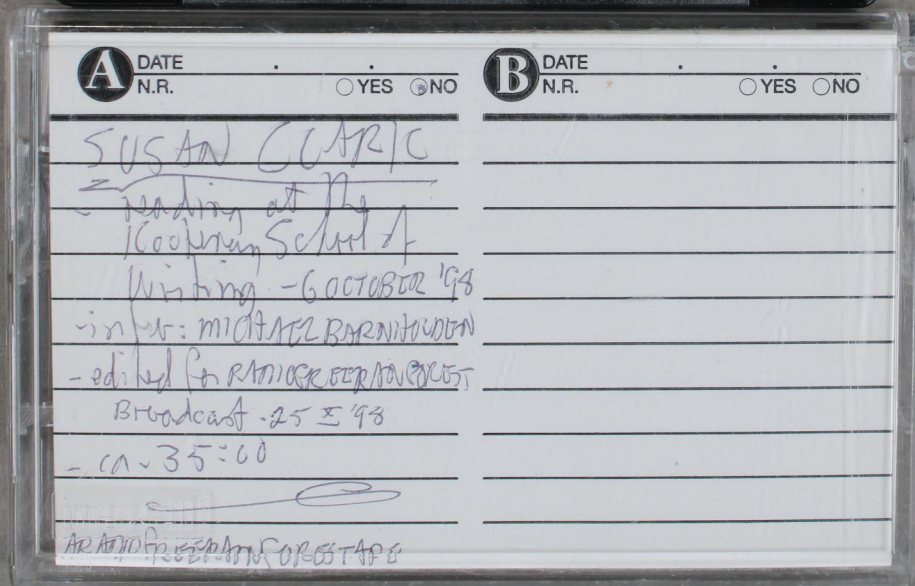 A DATE . .
N.R. YES NO
SUSAN CLARK
- reading at the
Kootenay School of
Writing - 6 OCTOBER '98
- intro: MICHAEL BARNHOLDEN
- edited for RADIOFREERAINFOREST
Broadcast - 25 X '98
- ca. 35:00
A RADIOFREERAINFOREST TAPE
B DATE . .
N.R. YES NO